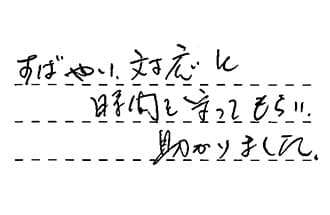 すばやい、対応と
時間を守ってもらい、
助かりました。